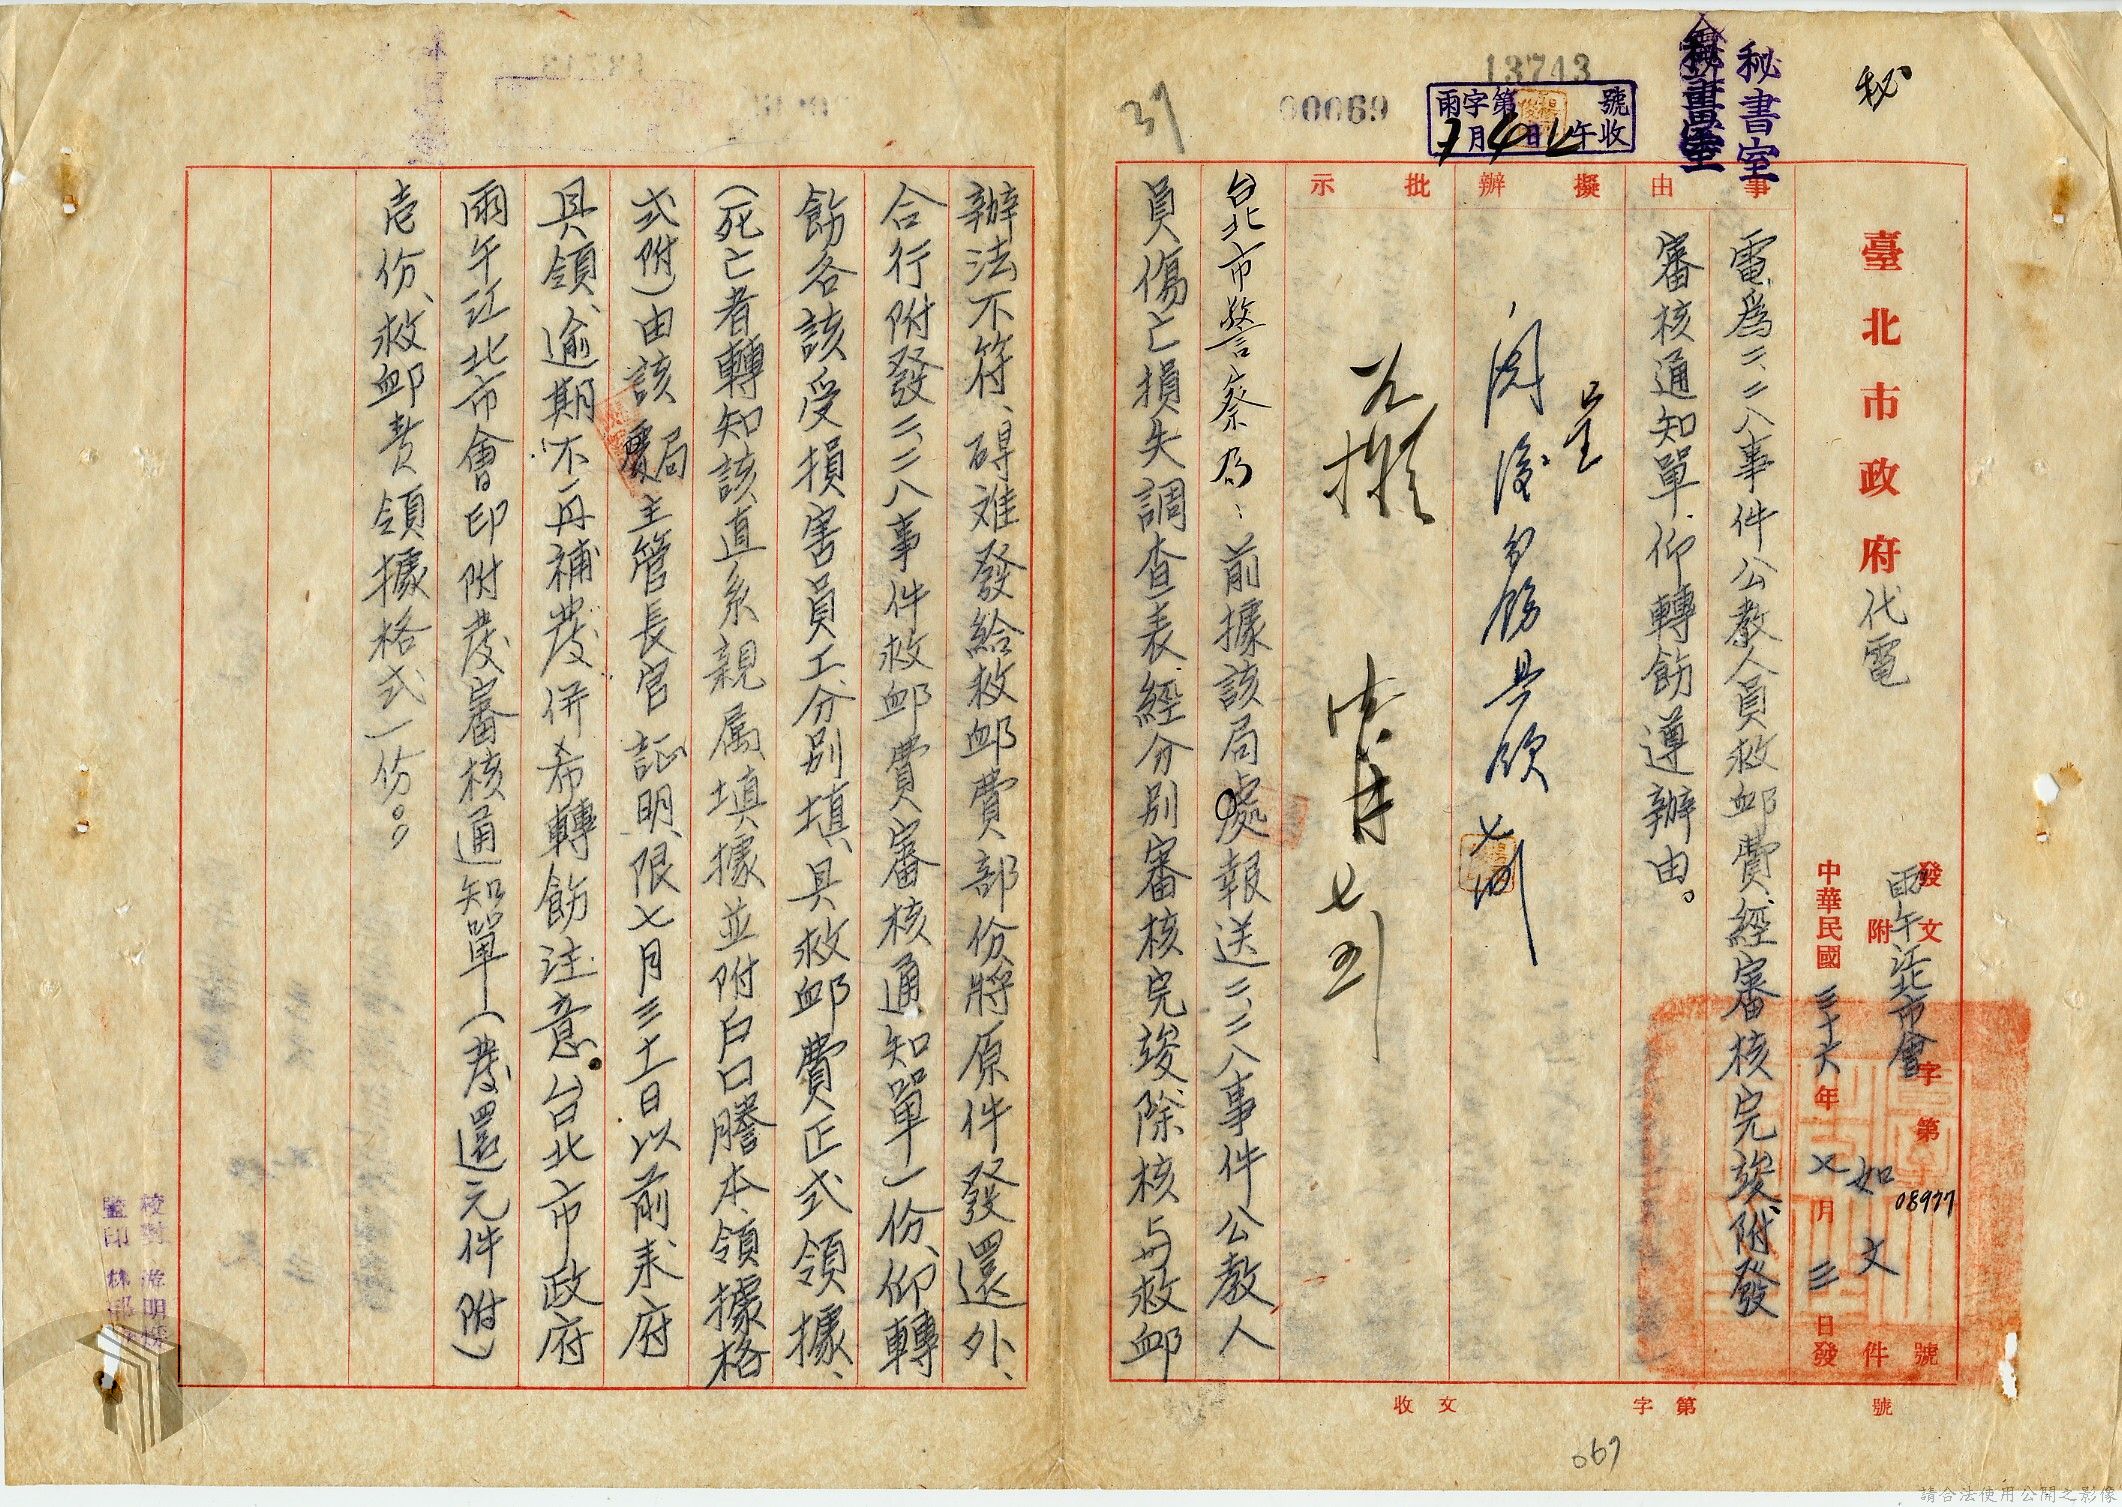 秘
秘書室
13743
00069
雨字第 號
7月4日上午收
37
臺北市政府代電
發文 字第 號
雨午江北市會
08977
附 件
如文
中華民國三十六年七月三日發
事由
電為二、二八事件公教人員救卹費、經審核完竣、附發
審核通知單、仰轉飭遵辦由。
擬辦
呈
閱後分飭具領
批示
台北市警察局：前據該局處報送二、二八事件公教人
員傷亡損失調查表、經分別審核完竣、除核与救卹
辦法不符、碍难發給救卹費部份、將原件發還外、
合行附發二、二八事件救卹費審核通知單一份、仰轉
飭各該受損害員工、分別填具救卹費正式領據、
（死亡者轉知該直系親属填據並附户口謄本、領據格
式附）由該局主管長官証明、限七月三十一日以前来府
具領、逾期不再補發、併希轉飭注意。台北市政府
雨午江北市會印附發審核通知單一（發還元件附）
壱份、救卹費領據格式一份。
收文 字第 號
067
校對
監印 林
請合法使用公開之影像